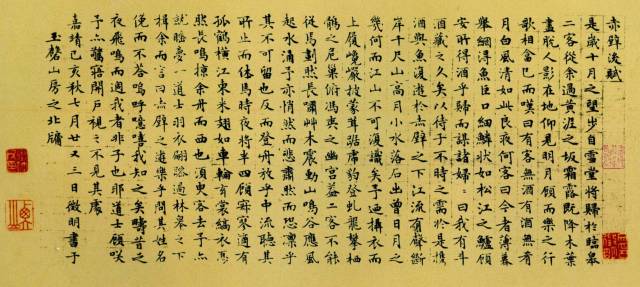 赤壁後賦
是歲十月之望步自雪堂將歸於臨皋
二客從余過黃泥之坂霜露既降木葉
盡脫人影在地仰見明月顧而樂之行
歌相答已而嘆曰有客無酒有酒無肴
月白風清如此良夜何客曰今者薄暮
舉網得魚巨口細鱗狀如松江之鱸顧
安所得酒乎歸而謀諸婦婦曰我有斗
酒藏之久矣以待子不時之需於是攜
酒與魚復遊於赤壁之下江流有聲斷
岸千尺山高月小水落石出曾日月之
幾何而江山不可復識矣予迺攝衣而
上履巉巖披蒙茸踞虎豹登虬龍攀栖
鶻之危巢俯馮夷之幽宮蓋二客不能
從焉劃然長嘯艸木震動山鳴谷應風
起水涌予亦悄然而悲肅然而恐凜乎
其不可留也反而登舟放乎中流聽其
所止而休焉時夜將半四顧寂寥適有
孤鶴橫江東來翅如車輪玄裳縞衣戛
然長鳴掠余舟而西也須臾客去予亦
就睡夢一道士羽衣翩躚過臨皋之下
揖余而言曰赤壁之遊樂乎問其姓名
俛而不答嗚呼噫嘻我知之矣疇昔之
夜飛鳴而過我者非子也耶道士顧咲
予亦驚寤開戶視之不見其處
嘉靖己亥秋七月廿又三日徵明書于
玉磬山房之北牖